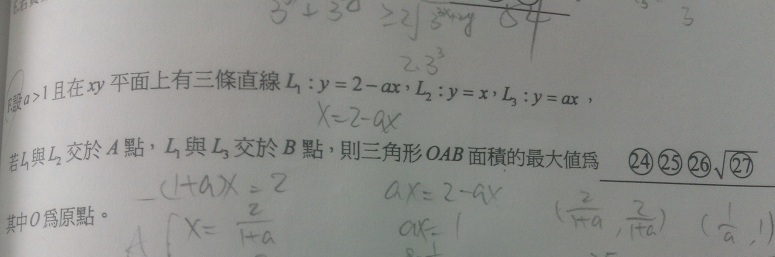 ≥2√
2·3³
設a>1且在xy平面上有三條直線L₁:y=2-ax,L₂:y=x,L₃:y=ax,
x=2-ax
若L₁與L₂交於A點,L₁與L₃交於B點,則三角形OAB面積的最大值為 ㉔㉕㉖√㉗
(1+a)x=2 ax=2-ax
其中O為原點。 x=2/(1+a) ax=1 (2/(1+a), 2/(1+a)) (1/a, 1)